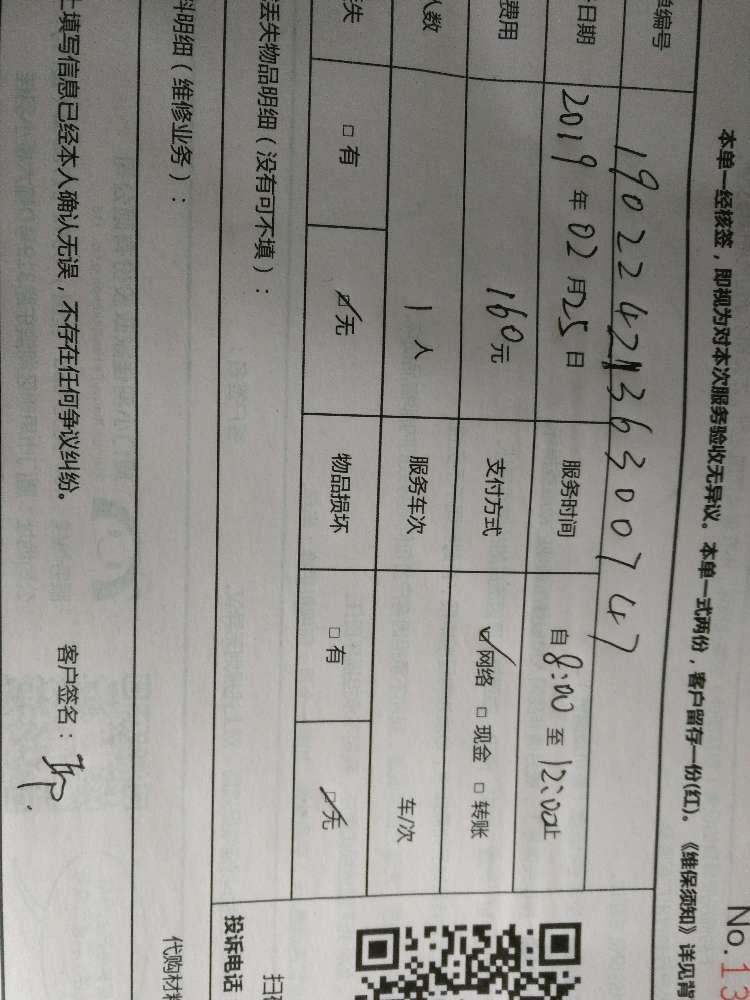 No.13
本单一经核签，即视为对本次服务验收无异议。本单一式两份，客户留存一份(红)。《维保须知》详见背
单编号 1902242136300747
日期 2019年02月25日 服务时间 自8:00至12:00止
费用 160元 支付方式 ☑网络 □现金 □转账
人数 1人 服务车次 车/次
失 □有 ☑无 物品损坏 □有 ☑无
丢失物品明细（没有可不填）：
投诉电话
扫
料明细（维修业务）：
代购材料
上填写信息已经本人确认无误，不存在任何争议纠纷。 客户签名：